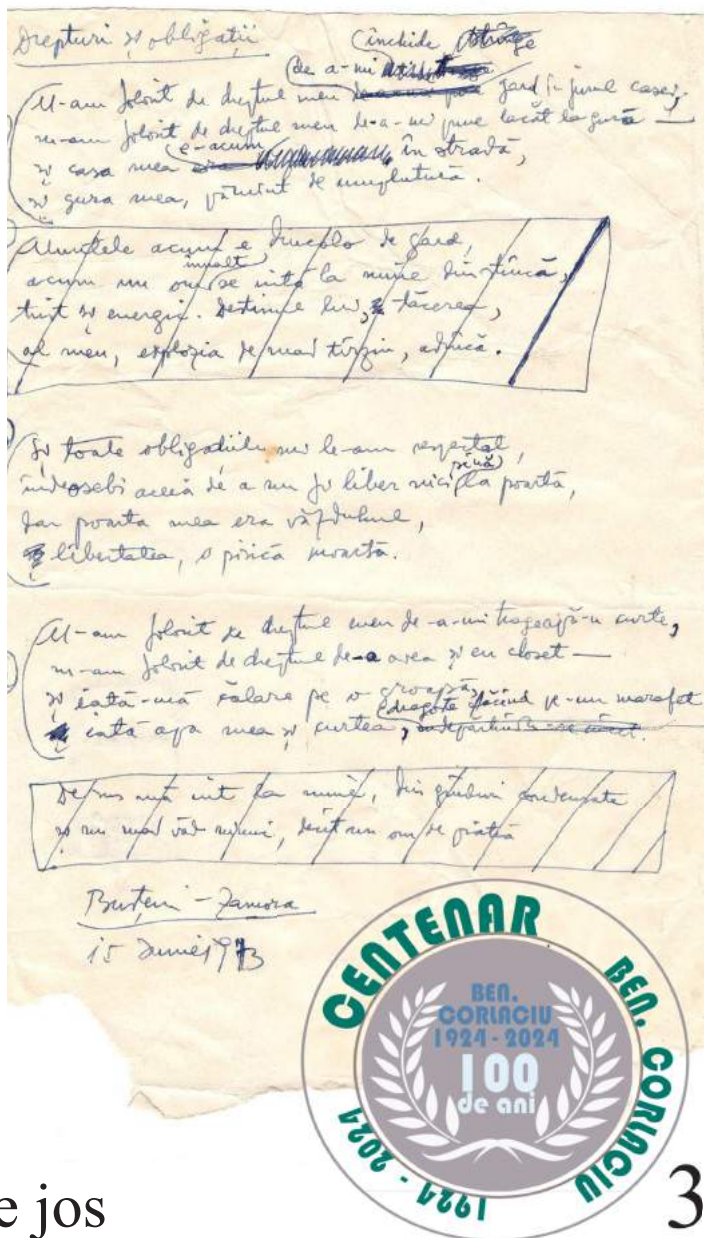 Drepturi și obligații
închide strânge
de a-mi
M-am folosit de dreptul meu de-a-mi pune gard în jurul casei,
m-am folosit de dreptul meu de-a-mi pune lacăt la gură —
e-acum
și casa mea era în stradă,
și gura mea, pămînt de umplutură.
acum e dincolo de gard,
înalt
acum un om se uită la mine din stîncă,
trist și energic. Destinul lui, tăcerea,
al meu, explozia de mai tîrziu, adîncă.
Și toate obligațiile mi le-am respectat,
pînă
îndeosebi aceea de a nu fi liber nici la poartă,
dar poarta mea era văzduhul,
și libertatea, o pisică moartă.
M-am folosit de dreptul meu de-a-mi trage apă-n curte,
m-am folosit de dreptul de-a avea și eu closet —
și iată-mă călare pe o groapă,
dragoste făcînd pe-un marafet
și iată apa mea și curtea,
De sus mă uit la mine, din
și nu mai văd nimic, decît un om de piatră
Bușteni - Zamora
15 Iunie 1973
CENTENAR
BEN. CORLACIU
1924 - 2024
BEN.
CORLACIU
1924 - 2024
100
de ani
e jos
3